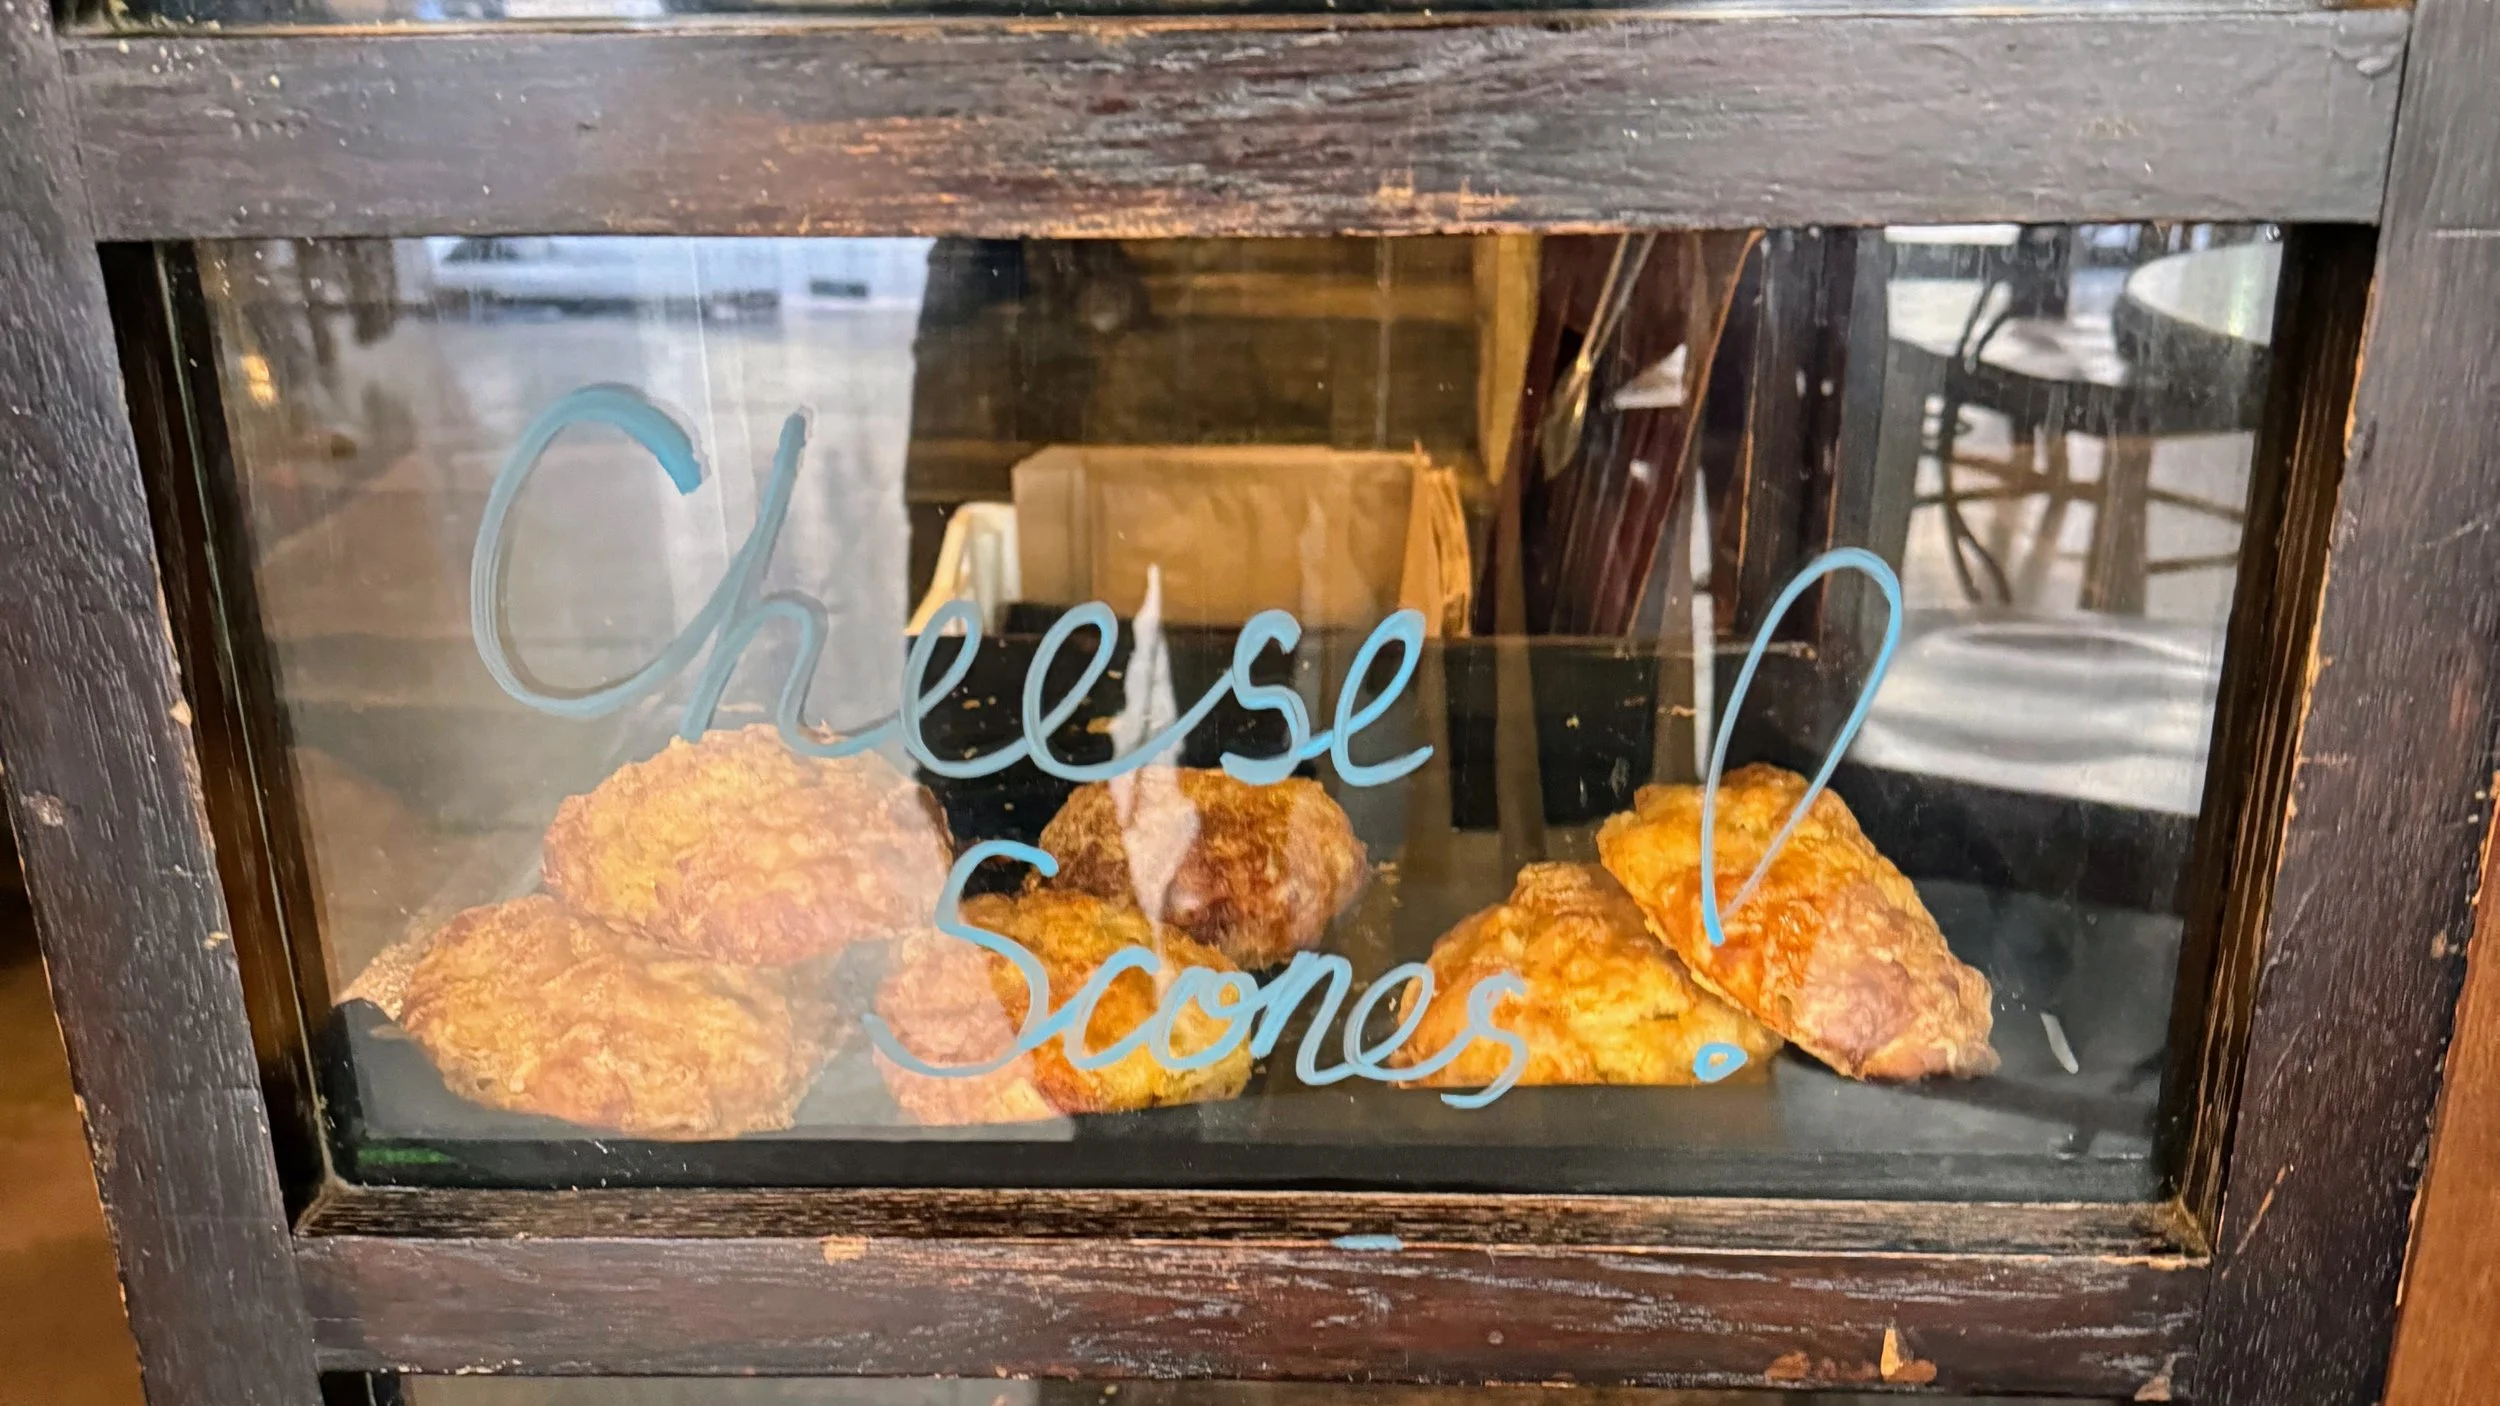 Cheese
Scones!